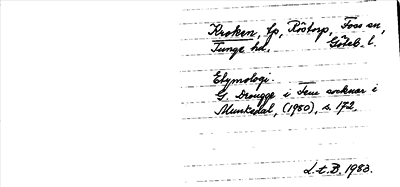 Kroken, lp, Röstorp, Foss sn,
Tunge hd, Göteb. l.
Etymologi.
G. Drougge i Fem socknar i
Munkedal, (1980), s. 172.
L.t.B. 1983.